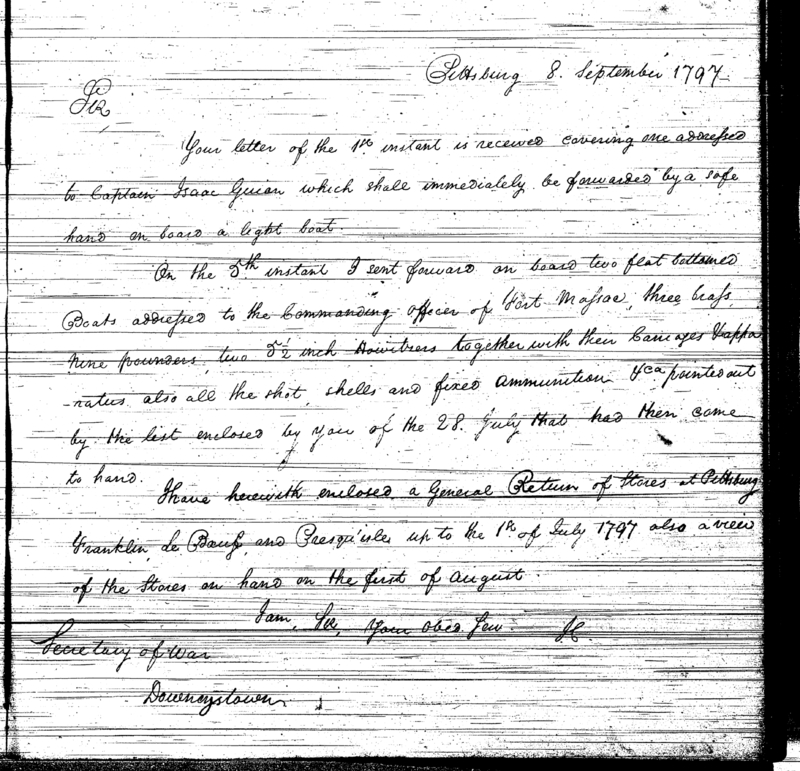 Pittsburg 8. September 1797
Sir
Your letter of the 1st. instant is received covering one addressed
to Captain Isaac Guion which shall immediately be forwarded by a safe
hand on board a light boat.
On the 5th instant I sent forward on board two flat bottomed
Boats addressed to the Commanding officer of Fort Massac, three brass
nine pounders, two 5 1/2 inch Howitzers together with their Carriages & appa
-ratus also all the shot, shells and fixed ammunition &ca pointed out
by the list enclosed by you of the 28. July that had then come
to hand.
I have herewith enclosed a General Return of Stores at Pittsburg
Franklin, Le Bœuf and Presqu'isle up to the 1st of July 1797 also a view
of the Stores on hand on the first of August.
I am, Sir, Your Obed. Ser.
Secretary of War
Downeystown